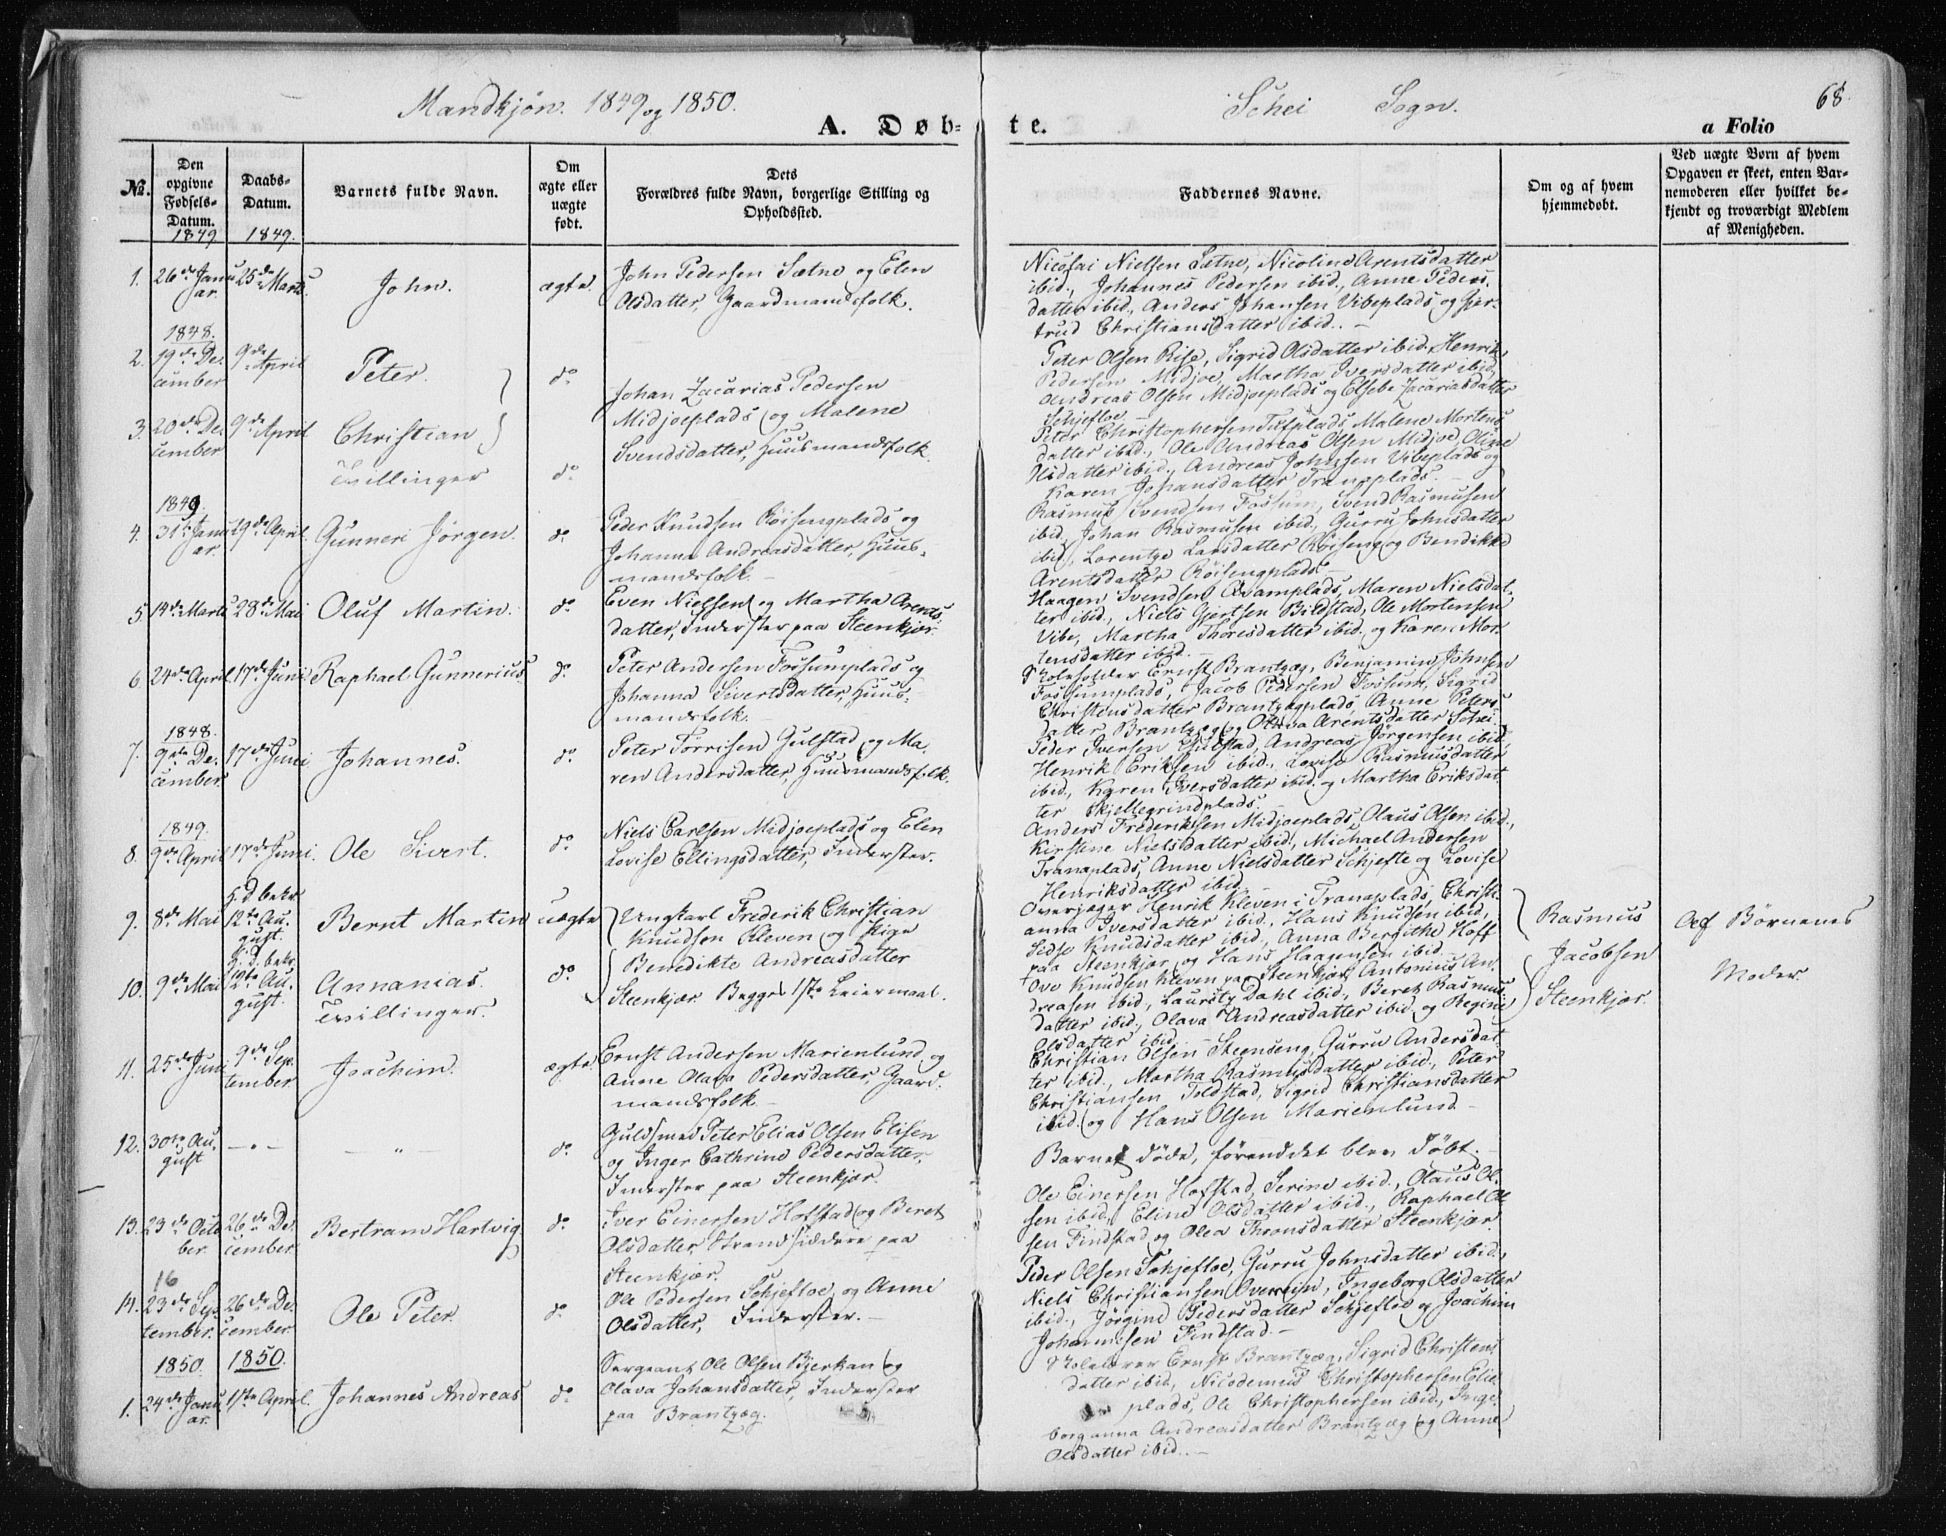 Mandkjøn. 1849 og 1850.
Schei Sogn.
68.
A. Døb-
te.
a Folio
No.
Den opgivne Fødsels-Datum.
Daabs-Datum.
Barnets fulde Navn.
Om ægte eller uægte født.
Dets Forældres fulde Navn, borgerlige Stilling og Opholdssted.
Faddernes Navne.
Om og af hvem hjemmedøbt.
Ved uægte Børn af hvem Opgaven er skeet, enten Barnemoderen eller hvilket bekjendt og troværdigt Medlem af Menigheden.
1849 1849.
1. 26de Janu 25de Marts. John. ægte.
ar.
John Pedersen Sætne og Elen
Olsdatter, Gaardmandsfolk.
Nicolai Nielsen Sætne, Nicoline Arentsdatter
ibid., Johannes Pedersen ibid., Anne Peders-
datter ibid., Anders Johansen Vibeplads og Gjer-
trud Christiansdatter ibid. –
1848.
2. 19de De- 9de April Peter. do
cember
3. 20de De- 9de April Christian
cember Tvillinger do
Johan Zacarias Pedersen
Midjoeplads og Malene
Svendsdatter, Huusmandsfolk.
Peter Olsen Rise, Sigrid Olsdatter ibid. Henrik
Pedersen Midjoe, Martha Iversdatter ibid.,
Andreas Olsen Midjoeplads og Elsebe Zacariasdatter
Schjefloe
Peter Christophersen Tufplads Malene Mortens
datter ibid., Ole Andreas Olsen Midjoe, Oline
Olsdatter ibid., Andreas Johnsen Vibeplads og
Karen Johansdatter Tranaplads. –
1849.
4. 31te Janu 19de April. Gunneri Jørgen. do
ar.
Peder Knudsen Røisengplads og
Johanna Andreasdatter, Huus-
mandsfolk. –
Rasmus Svendsen Fossum, Svend Rasmusen
ibid., Johan Rasmusen ibid., Gurru Johnsdatter
ibid., Lorentze Larsdatter Røiseng og Bendikke
Arentsdatter Røisengplads. –
5. 14de Marts 28de Mai Oluf Martin. do
Even Nielsen og Martha Arents-
datter, Inderster paa Steenkjær.
Haagen Svendsen Qvamplads, Maren Nielsdat-
ter ibid., Niels Gjertsen Bildstad, Ole Mortensen
Vibe, Martha Thoresdatter ibid. og Karen Mor-
tensdatter ibid. –
6. 24de April 17de Juni Raphael Gunnerius. do
Peter Andersen Fossumplads og
Johanna Sivertsdatter, Huus-
mandsfolk. –
Skoleholder Ernst Brantzæg, Benjamin Johnsen
Fossumplads, Jacob Pedersen Fossum, Sigrid
Christensdatter Brantzægplads, Anne Peters-
datter Brantzæg og Olava Arentsdatter Schei. –
1848.
7. 9de De- 17de Juni Johannes. do
cember.
Peter Torrisen Gulstad og Ma-
ren Andersdatter, Huusmandsfolk.
Peder Iversen Gulstad, Andreas Jørgensen ibid.,
Henrik Eriksen ibid., Lovise Rasmusdatter
ibid., Karen Iversdatter ibid. og Martha Eriksdat-
ter Skjellegrindplads. –
1849.
8. 9de April 17de Juni. Ole Sivert. do
Niels Carlsen Midjoeplads og Elen
Lovise Ellingsdatter, Inderster.
Anders Frederiksen Midjoeplads, Olaus Olsen ibid.,
Kirstene Nielsdatter ibid., Michael Andersen
Tranaplads, Anne Nielsdatter Schjefte og Lovise
Henriksdatter ibid.
H. d. bekr.
9. 8de Mai 12te Au- Bernt Martin uægte
gust.
Ungkarl Frederik Christian
Knudsen Kleven og Pige
Overjæger Henrik Kleven i Tranaplads, Christi-
anna Iversdatter ibid., Hans Knudsen ibid.,
Sidse Knudsdatter ibid., Anna Bergithe Hoff
paa Steenkjær og Hans Haagensen ibid.
Rasmus
Jacobsen
Steenkjær.
Af Børnenes
Moder.
H. d. bekr.
10. 9de Mai 12te Au- Annanias. do
gust. Tvillinger.
Benedikte Andreasdatter
Steenkjær Begges 1ste Leiermaal.
Ove Knudsen Kleven paa Steenkjær, Antonius An-
dreasen ibid., Lauritz Dahl ibid., Beret Rasmus-
datter ibid., Olava Andreasdatter ibid. og Regine
Olsdatter ibid. –
11. 25de Juni 9de Sep- Joachim. ægte.
tember
Ernst Andersen Marienlund og
Anne Olava Pedersdatter, Gaard-
mandsfolk. –
Christian Olsen Steenseng, Gurru Andersdat-
ter ibid., Martha Rasmusdatter ibid., Peter
Christiansen Toldstad, Sigrid Christiansdatter
ibid. og Hans Olsen Marienlund. –
12. 30te Au- – „ – – „ – do
gust
Guldsmed Peter Elias Olsen Elisen
og Inger Cathrine Pedersdatter,
Inderster paa Steenkjær.
Barnet døde, førend det blev Døbt. –
13. 23de Octo 26de De- Bertram Hartvig. do
ber. cember.
Iver Einersen Hofstad og Beret
Olsdatter, Strandsiddere paa
Steenkjær.
Ole Einersen Hofstad, Serine ibid., Olaus Ol-
sen ibid., Eline Olsdatter ibid., Raphael Ol-
sen Findstad og Olea Thronsdatter Steenkjær.
16
14. 23de Sep- 26de De- Ole Peter. do
tember. cember.
Ole Pedersen Schjefloe og Anne
Olsdatter, Inderster. –
Peder Olsen Schjefloe, Gurru Johnsdatter ibid.,
Niels Christiansen Overrein, Ingeborg Olsdatter
ibid., Jørgine Pedersdatter Schjefloe og Joachim
Johannesen Findstad. –
1850. 1850.
1. 24de Janu 1ste April. Johannes Andreas do
ar.
Sergeant Ole Olsen Bjerkan og
Olava Johansdatter, Inderster
paa Brantzæg.
Skolelærer Ernst Brantzæg, Sigrid Christens
datter ibid., Nicodemus Christophersen Elie
plads, Ole Christophersen ibid., Inge-
borganna Andreasdatter Brantzæg og Anne
Olsdatter ibid. –